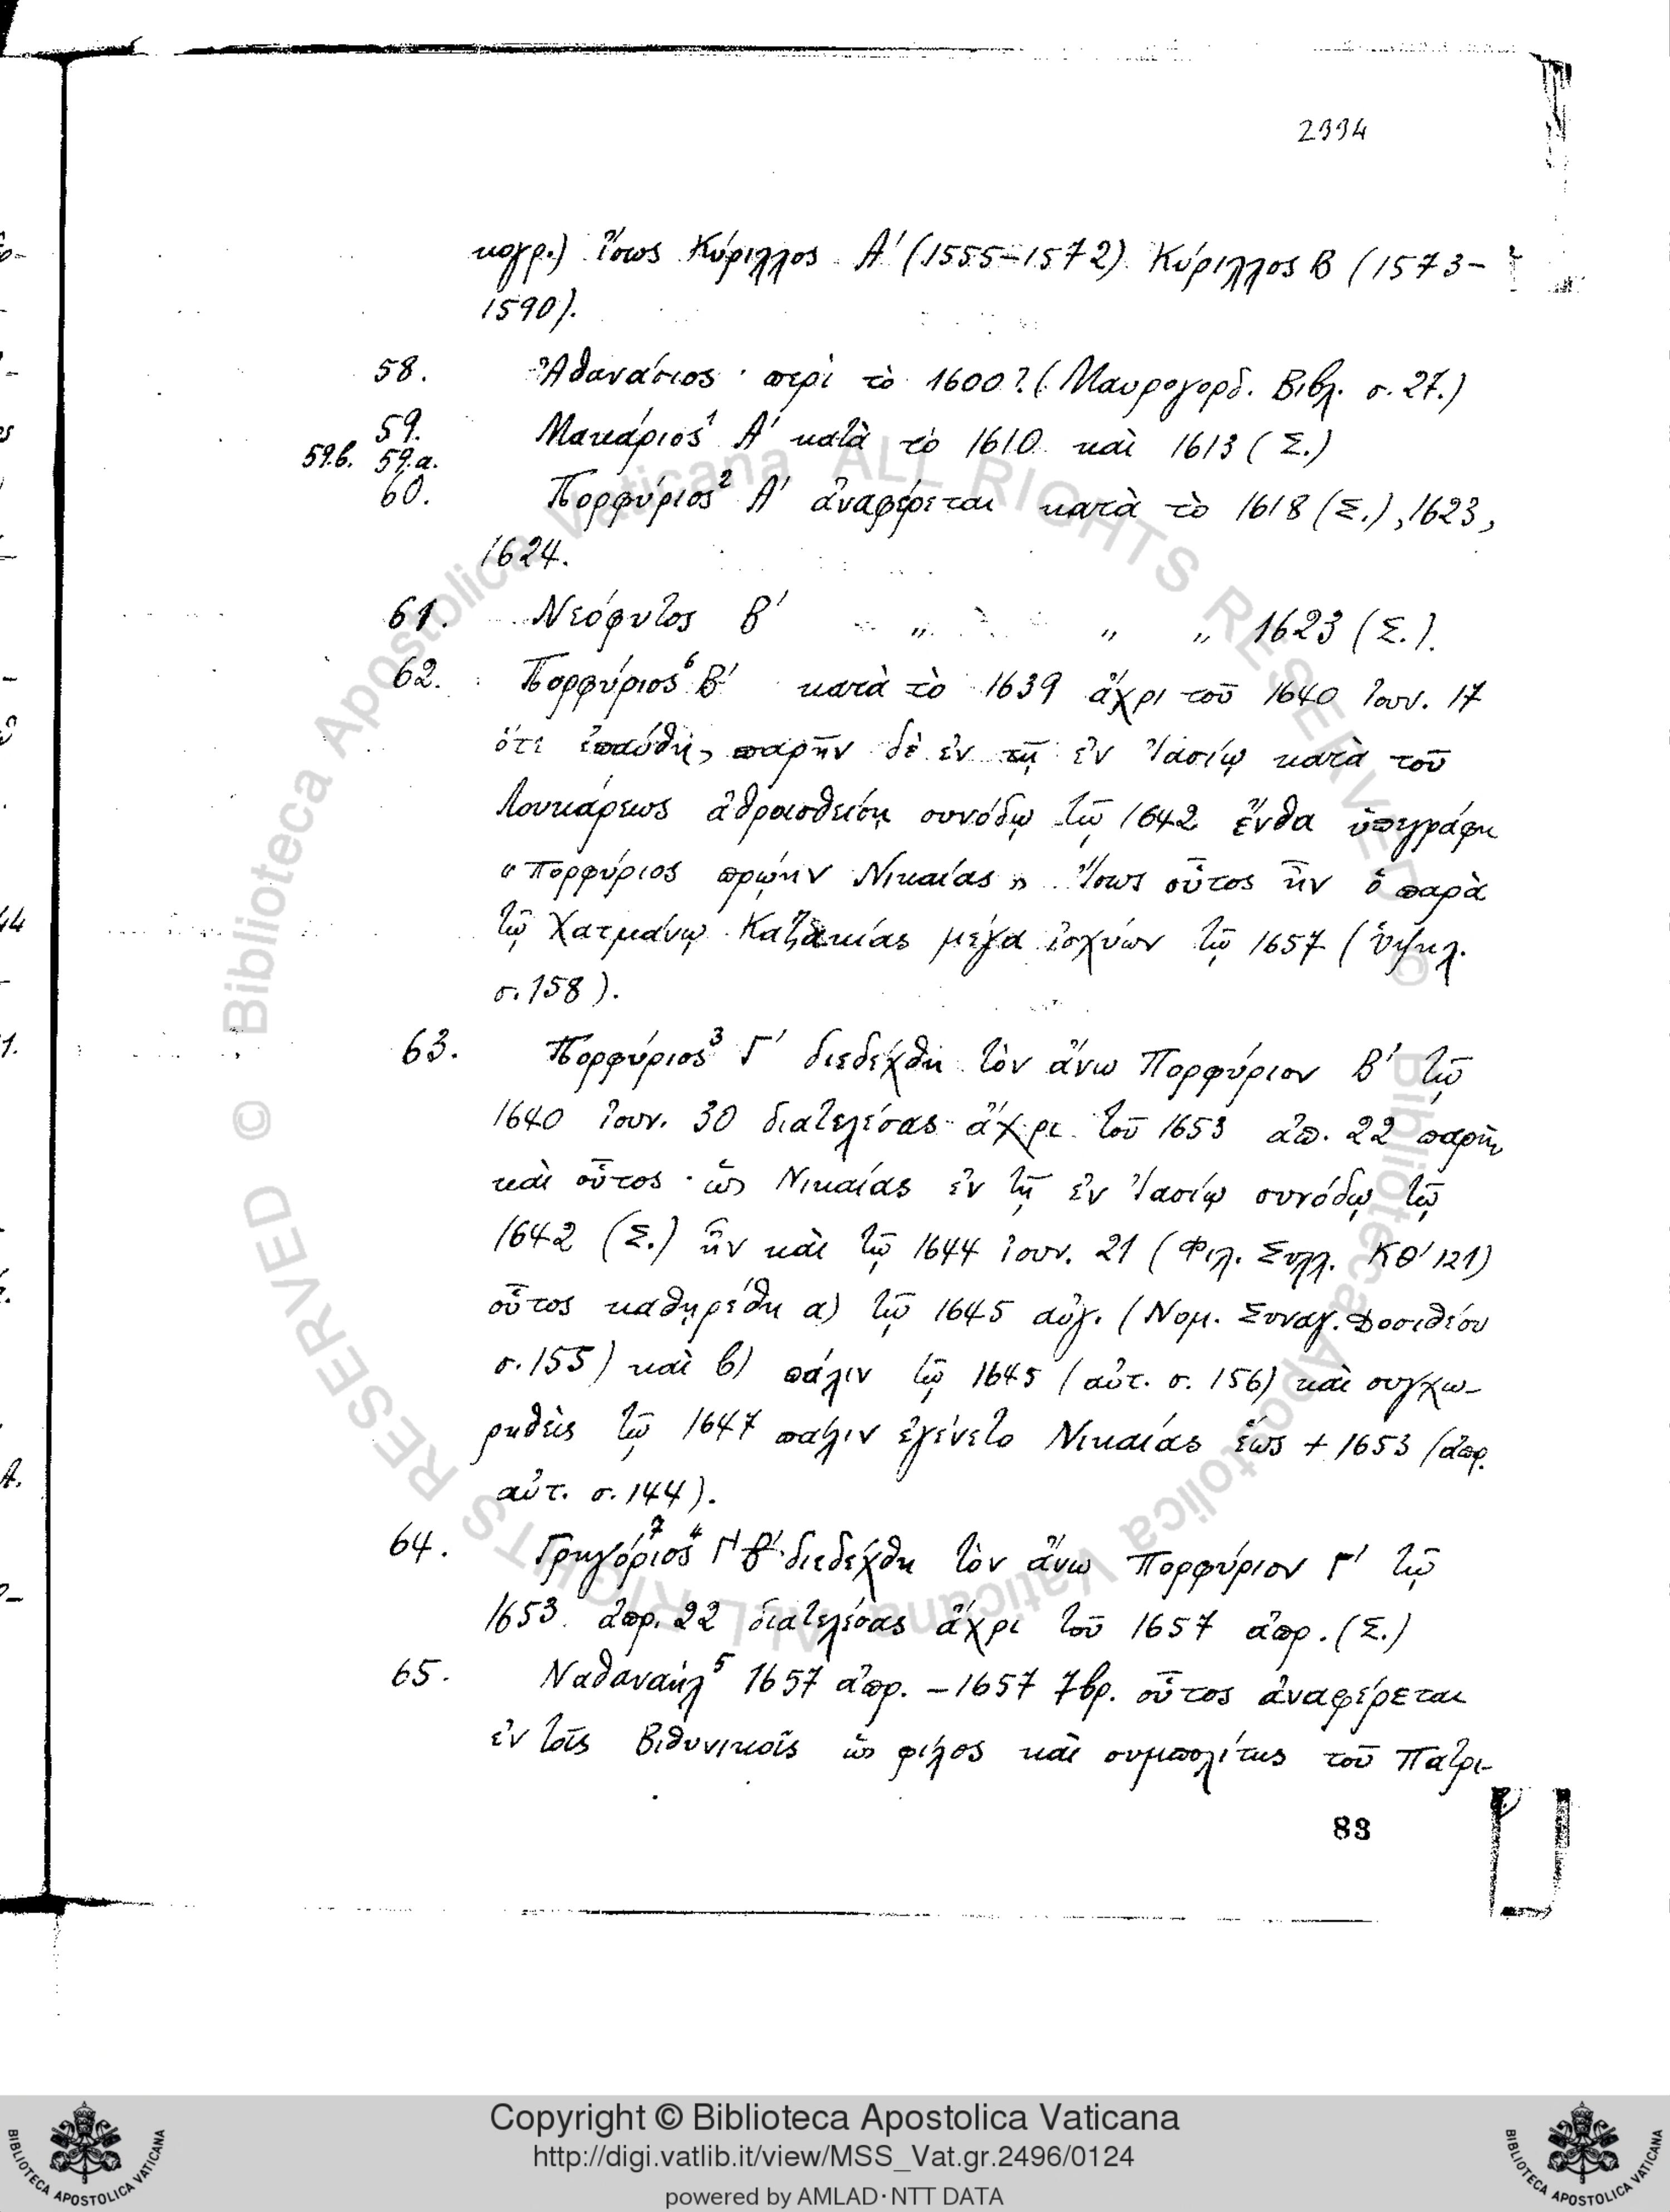 2994
κογρ.) ἴσως Κύριλλος Α' (1555-1572) Κύριλλος Β (1573-
1590).
58. Ἀθανάσιος περὶ τὸ 1600? (Μαυρογορδ. Βιβλ. σ. 27.)
59. Μακάριος¹ Α' κατὰ τὸ 1610 καὶ 1613 (Σ.)
59.β. 59.α.
60. Πορφύριος² Α' ἀναφέρεται κατὰ τὸ 1618 (Σ.), 1623,
1624.
61. Νεόφυτος Β' „ „ „ 1623 (Σ.).
62. Πορφύριος⁶ Β' κατὰ τὸ 1639 ἄχρι τοῦ 1640 Ἰουν. 17
ὅτε ἐπαύθη, παρῆν δὲ ἐν τῇ ἐν Ἰασίῳ κατὰ τοῦ
Λουκάρεως ἀθροισθείσῃ συνόδῳ τῷ 1642 ἔνθα ὑπεγράφη
« Πορφύριος πρώην Νικαίας » Ἴσως οὗτος ἦν ὁ παρὰ
τῷ Χατμάνῳ Καζακίας μέγα ἰσχύων τῷ 1657 (Ὑψηλ.
σ. 158).
63. Πορφύριος³ Γ' διεδέχθη τὸν ἄνω Πορφύριον Β' τῷ
1640 Ἰουν. 30 διατελέσας ἄχρι τοῦ 1653 ἀπ. 22 παρῆν
καὶ οὗτος ὡς Νικαίας ἐν τῇ ἐν Ἰασίῳ συνόδῳ τῷ
1642 (Σ.) ἦν καὶ τῷ 1644 Ἰουν. 21 (Φιλ. Συλλ. ΚΘ' 121)
οὗτος καθῃρέθη α) τῷ 1645 αὐγ. (Νομ. Συναγ. Δοσιθέου
σ. 155) καὶ β) πάλιν τῷ 1645 (αὐτ. σ. 156) καὶ συγχω-
ρηθεὶς τῷ 1647 πάλιν ἐγένετο Νικαίας ἕως + 1653 (ἀπρ.
αὐτ. σ. 144).
64. Γρηγόριος⁷ ⁴ Γ' Β' διεδέχθη τὸν ἄνω Πορφύριον Γ' τῷ
1653 ἀπρ. 22 διατελέσας ἄχρι τοῦ 1657 ἀπρ. (Σ.)
65. Ναθαναὴλ⁵ 1657 ἀπρ. - 1657 7βρ. οὗτος ἀναφέρεται
ἐν τοῖς Βιθυνικοῖς ὡς φίλος καὶ συμπολίτης τοῦ Πατρι-
83
© Biblioteca Apostolica Vaticana ALL RIGHTS RESERVED © Biblioteca Apostolica Vaticana ALL RIGHTS RESERVED
Copyright © Biblioteca Apostolica Vaticana
http://digi.vatlib.it/view/MSS_Vat.gr.2496/0124
powered by AMLAD·NTT DATA
BIBLIOTECA APOSTOLICA VATICANA
BIBLIOTECA APOSTOLICA VATICANA